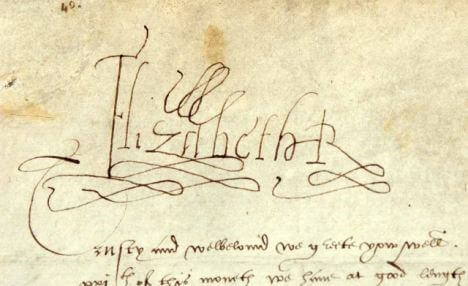 48.
Elizabeth R
Trusty and welbelovid we greete yow well.
of this moneth we have at good length